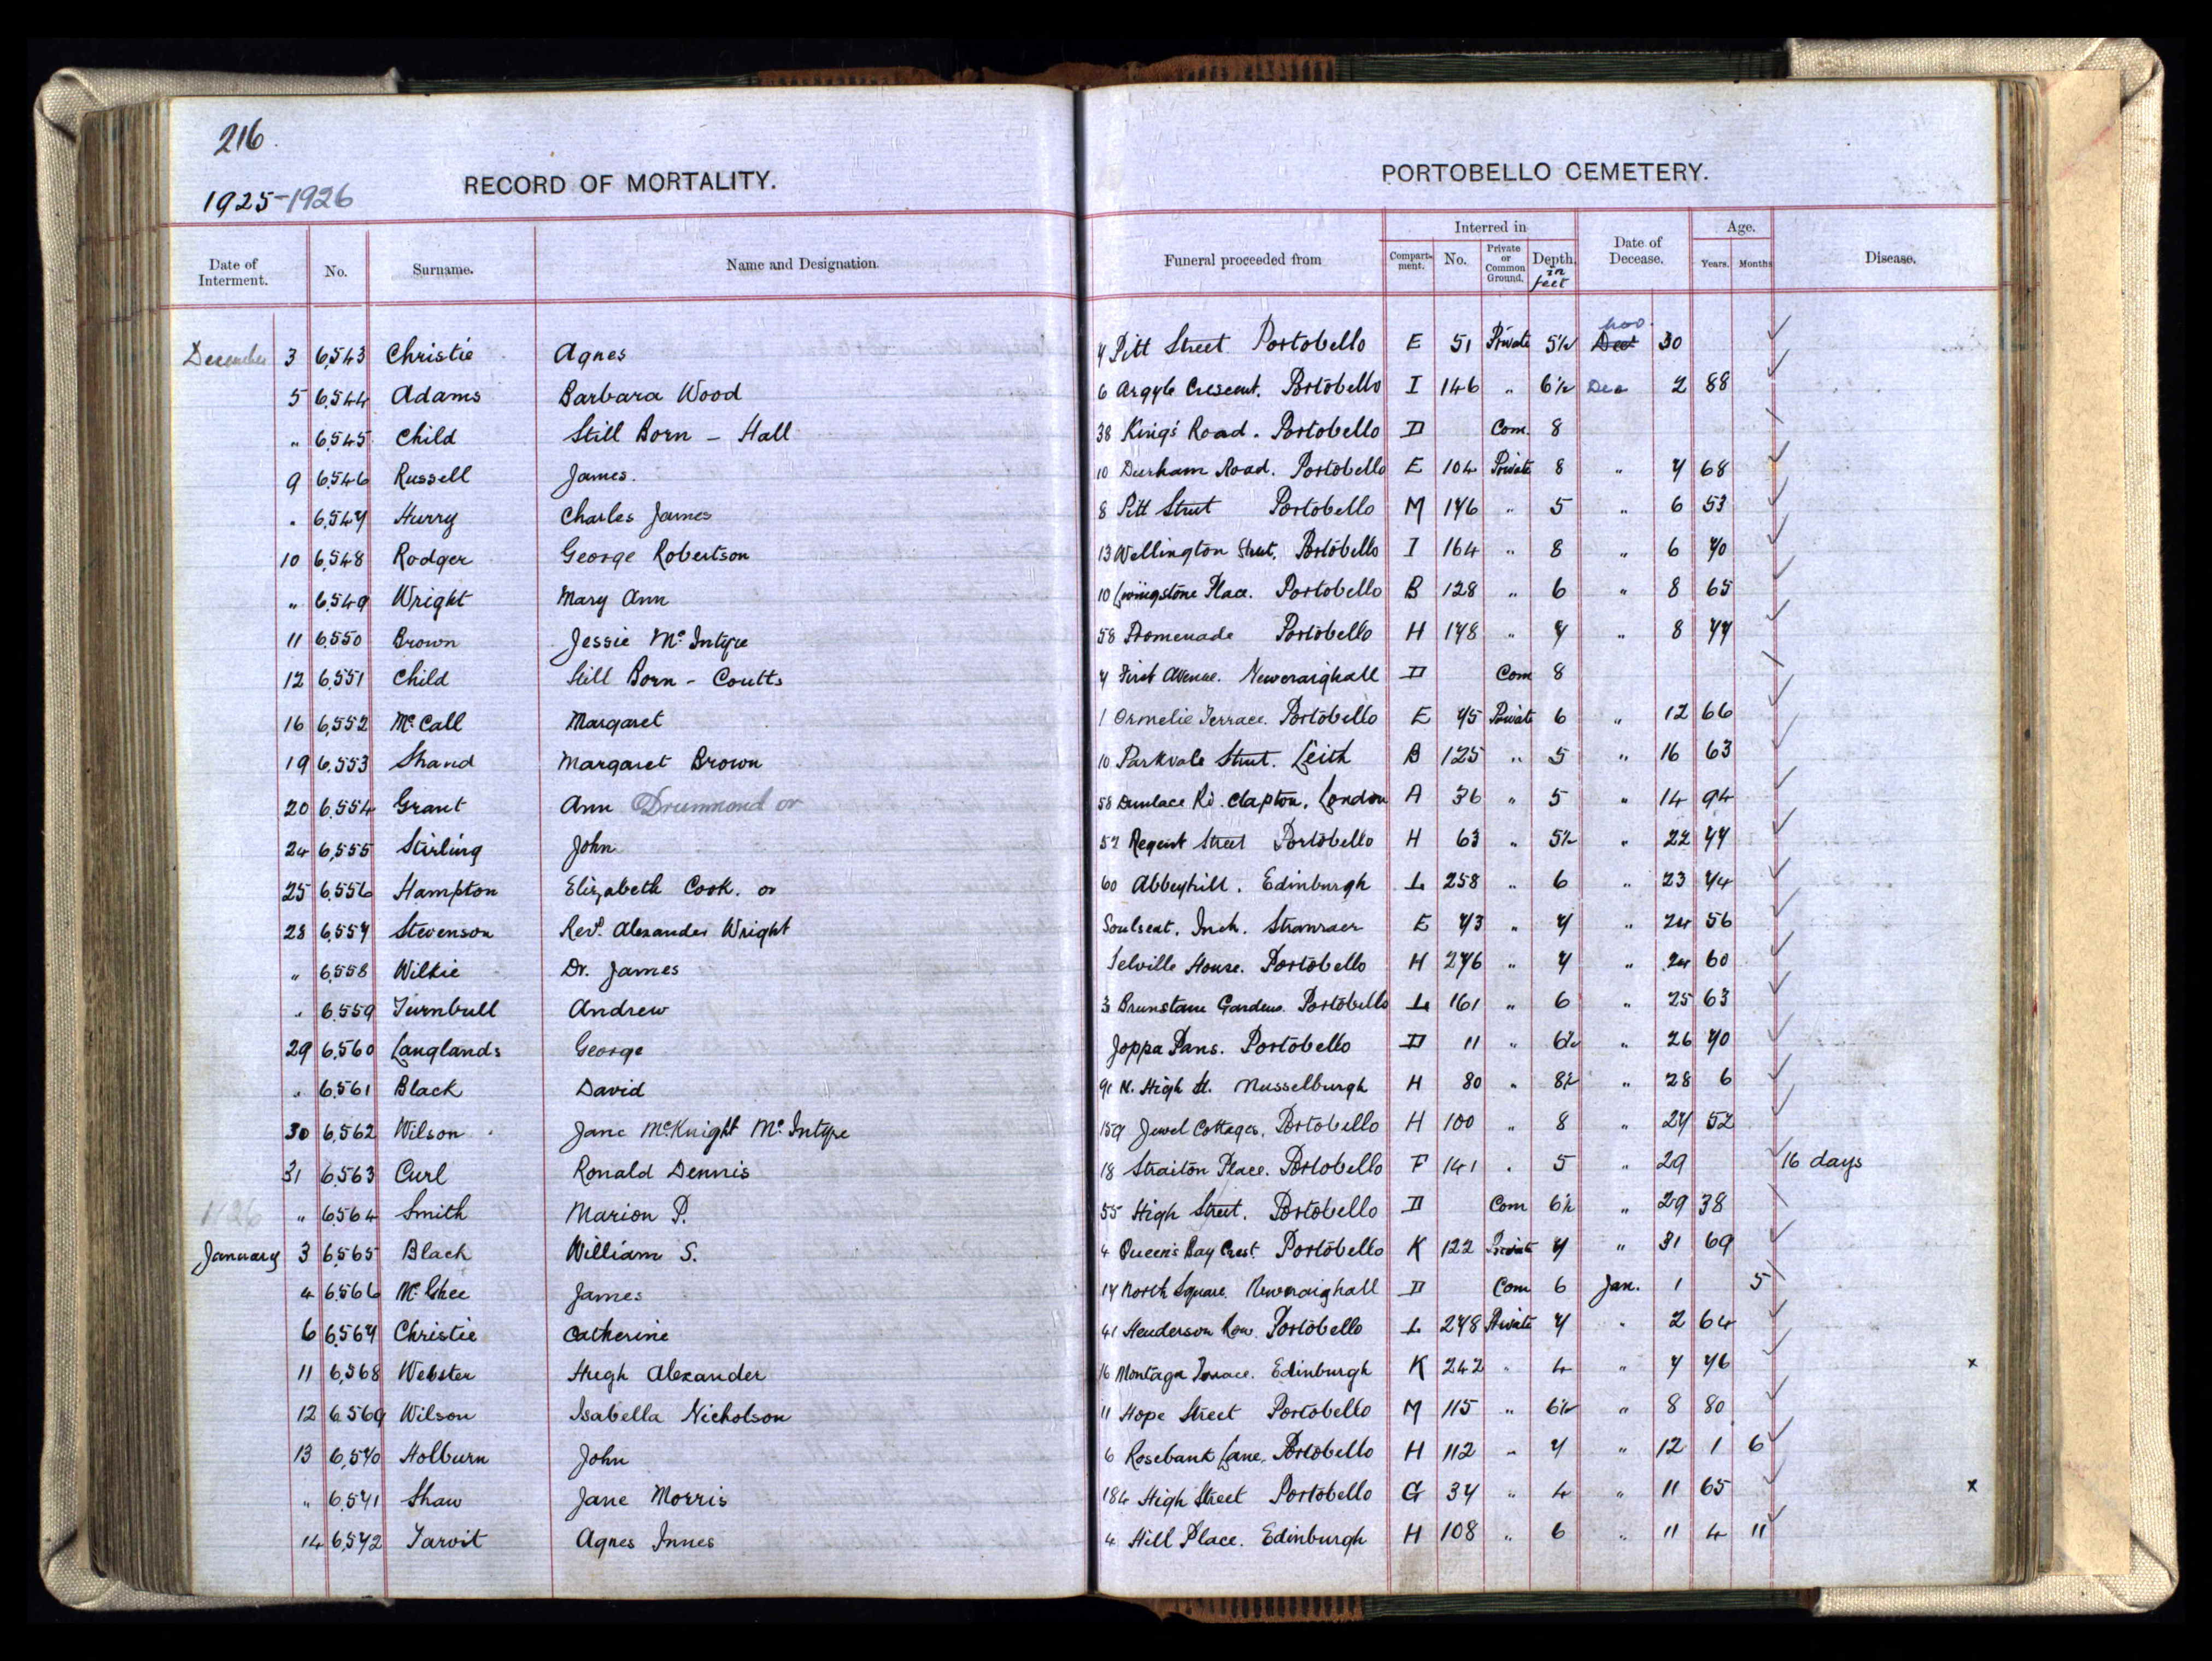 216
1925-1926
RECORD OF MORTALITY.
PORTOBELLO CEMETERY.
Date of Interment. No. Surname. Name and Designation. Funeral proceeded from Interred in Compartment. No. Private or Common Ground. Depth. in feet Date of Decease. Age. Years. Months Disease.
December 3 6,543 Christie Agnes 7 Pitt Street Portobello E 51 Private 5½ Dec Nov. 30
5 6,544 Adams Barbara Wood 6 Argyle Crescent. Portobello I 146 " 6½ Dec 2 88
" 6,545 Child Still Born - Hall 38 King's Road. Portobello D Com. 8
9 6,546 Russell James. 10 Durham Road. Portobello E 104 Private 8 " 7 68
" 6,547 Hurry Charles James 8 Pitt Street Portobello M 176 " 5 " 6 53
10 6,548 Rodger George Robertson 13 Wellington Street. Portobello I 164 " 8 " 6 70
" 6,549 Wright Mary Ann 10 Livingstone Place. Portobello B 128 " 6 " 8 65
11 6,550 Brown Jessie McIntyre 58 Promenade Portobello H 178 " 7 " 8 77
12 6,551 Child Still Born - Coutts 7 First Avenue. Newcraighall D Com 8
16 6,552 McCall Margaret 1 Ormelie Terrace. Portobello E 75 Private 6 " 12 66
19 6,553 Shand Margaret Brown 10 Parkvale Street. Leith B 125 " 5 " 16 63
20 6,554 Grant Ann Drummond or 58 Dunlace Rd. Clapton, London A 36 " 5 " 14 94
24 6,555 Stirling John 57 Regent Street Portobello H 63 " 5½ " 22 77
25 6,556 Hampton Elizabeth Cook. or 60 Abbeyhill. Edinburgh L 258 " 6 " 23 74
28 6,557 Stevenson Revd. Alexander Wright Soulseat. Inch. Stranraer E 73 " 7 " 24 56
" 6,558 Wilkie Dr. James Selville House. Portobello H 276 " 7 " 24 60
" 6,559 Turnbull Andrew 3 Brunstane Gardens. Portobello L 161 " 6 " 25 63
29 6,560 Langlands George Joppa Pans. Portobello D 11 " 6½ " 26 70
" 6,561 Black David 91 N. High St. Musselburgh H 80 " 8½ " 28 6
30 6,562 Wilson Jane McKnight McIntyre 159 Jewel Cottages, Portobello H 100 " 8 " 27 52
31 6,563 Curl Ronald Dennis 18 Straiton Place. Portobello F 141 " 5 " 29 16 days
1926 " 6,564 Smith Marion P. 55 High Street. Portobello D Com 6½ " 29 38
January 3 6,565 Black William S. 4 Queen's Bay Crest. Portobello K 122 Private 7 " 31 69
4 6,566 McGhee James 17 North Square. Newcraighall D Com 6 Jan. 1 5
6 6,567 Christie Catherine 41 Henderson Row. Portobello L 278 Private 7 " 2 64
11 6,568 Webster Hugh Alexander 16 Montague Terrace. Edinburgh K 242 " 4 " 7 76 x
12 6,569 Wilson Isabella Nicholson 11 Hope Street Portobello M 115 " 6½ " 8 80
13 6,570 Holburn John 6 Rosebank Lane. Portobello H 112 " 7 " 12 1 6
" 6,571 Shaw Jane Morris 184 High Street Portobello G 37 " 4 " 11 65 x
14 6,572 Tarvit Agnes Innes 4 Hill Place. Edinburgh H 108 " 6 " 11 4 11